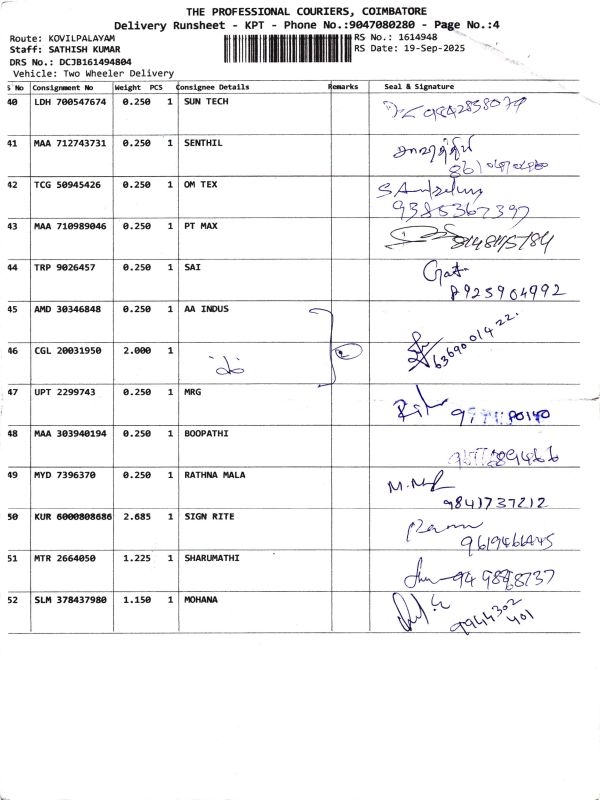 THE PROFESSIONAL COURIERS, COIMBATORE
Delivery Runsheet - KPT - Phone No.:9047080280 - Page No.:4
Route: KOVILPALAYAM
RS No.: 1614948
Staff: SATHISH KUMAR
RS Date: 19-Sep-2025
DRS No.: DCJB161494804
Vehicle: Two Wheeler Delivery
S No Consignment No Weight PCS Consignee Details Remarks Seal & Signature
40 LDH 700547674 0.250 1 SUN TECH
41 MAA 712743731 0.250 1 SENTHIL
42 TCG 50945426 0.250 1 OM TEX
9385367397
43 MAA 710989046 0.250 1 PT MAX
44 TRP 9026457 0.250 1 SAI
8925904992
45 AMD 30346848 0.250 1 AA INDUS
46 CGL 20031950 2.000 1
6369001422.
47 UPT 2299743 0.250 1 MRG
48 MAA 303940194 0.250 1 BOOPATHI
49 MYD 7396370 0.250 1 RATHNA MALA
9841737212
50 KUR 6000808686 2.685 1 SIGN RITE
51 MTR 2664050 1.225 1 SHARUMATHI
52 SLM 378437980 1.150 1 MOHANA
9944302
401